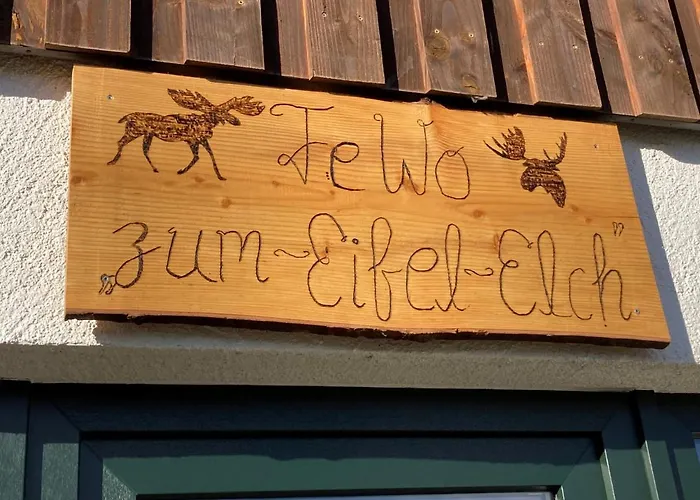 FeWo
„zum-Eifel-Elch"